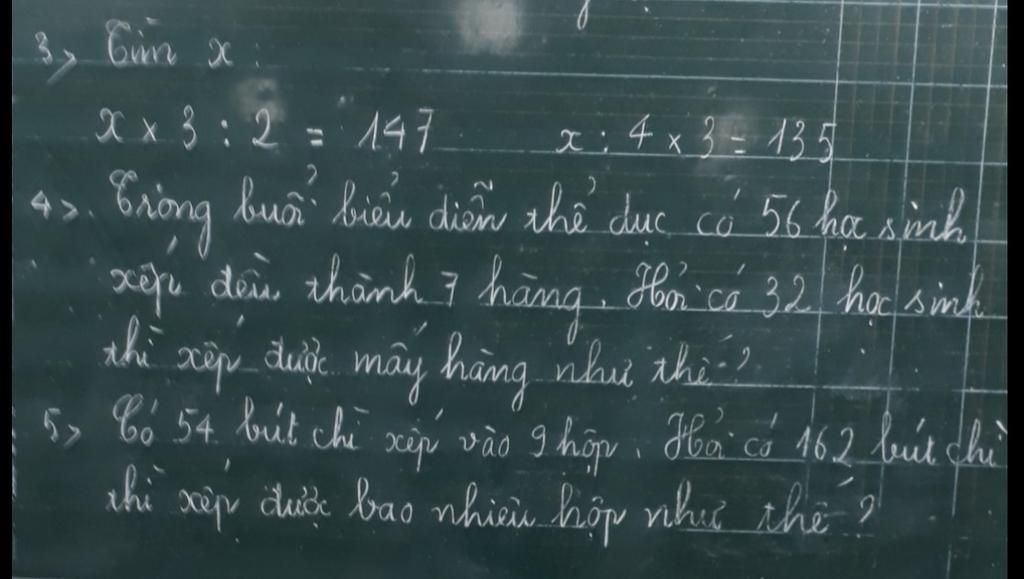 3> Tìm x :
x × 3 : 2 = 147 x : 4 × 3 = 135
4>. Trong buổi biểu diễn thể dục có 56 học sinh
xếp đều thành 7 hàng. Hỏi có 32 học sinh
thì xếp được mấy hàng như thế?
5> Có 54 bút chì xếp vào 9 hộp. Hỏi có 162 bút chì
thì xếp được bao nhiêu hộp như thế?